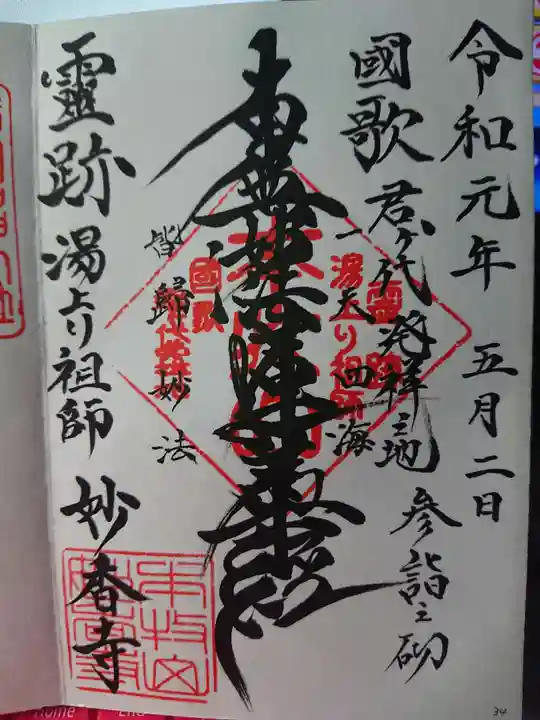 令和元年 五月二日
國歌 君が代発祥之地 参詣之砌
一天四海
南無妙法蓮華経
皆歸妙法
靈跡 湯上り祖師 妙香寺
國歌
34